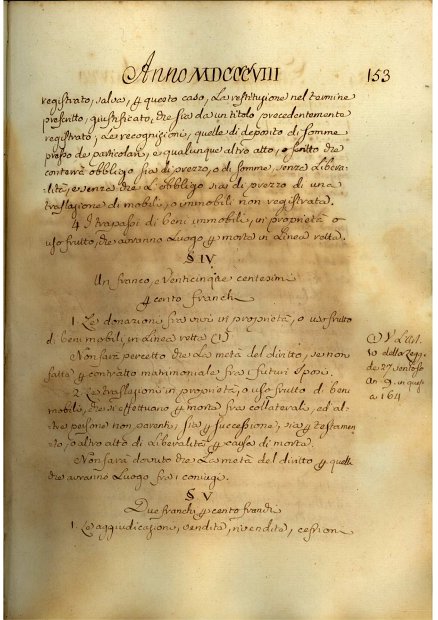 Anno MDCCCVIII 153
registrato, salva, ꝑ questo caso, La restituzione nel termine
prescritto, giustificato, che sia da un titolo precedentemente
registrato, Le recognizioni, quelle di deposito di somme
presso de particolari, e qualunque altro atto, o scritto che
conterrà obbligo sia di prezzo, o di somme, senza Libera-
lità, e senza che L'obbligo sia di prezzo di una
traslazione di mobili, o immobili non registrata.
4. I trapassi di beni immobili, in proprietà o
usofrutto, che avranno Luogo ꝑ morte in Linea retta.
§ IV
Un franco, e Venticinque centesimi
ꝑ cento franchi
1. Le donazioni fra vivi in proprietà, o usofrutto
di beni mobili, in Linea retta (1)
Non sarà percetto che La metà del diritto, se non
fatte ꝑ contratto matrimoniale fra i futuri sposi.
2. Le traslazioni in proprietà, o usofrutto di beni
mobili, che si effettuano ꝑ morte fra collaterali, ed al-
tre persone non parenti, sia ꝑ successione, sia ꝑ testamen-
to, o altro atto di Liberalità ꝑ causa di morte.
Non sarà dovuto che La metà del diritto ꝑ quelle
che avranno Luogo fra i coniugi.
§ V
Due franchi ꝑ cento franchi
1. Le aggiudicazioni, vendite, rivendite, cessioni
V. L'art.
10 della Legg.
de 27 ventoso
An. 9. in questo
a 164